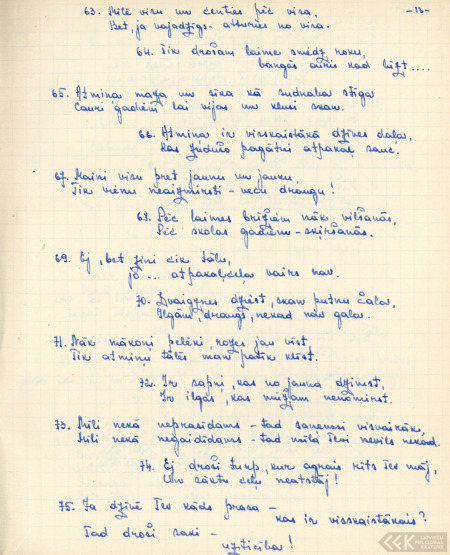 -13-
63. Mīlē visu un centies pēc visa,
Bet, ja vajadzīgs - atturies no visa.
64. Tik drošam laime sniedz roku,
bangās airis kad lūzt....
65. Atmiņa maza un sīka kā sudraba stīga
Cauri gadiem lai vijas un klusi skan.
66. Atmiņa ir visskaistākā dzīves daļa,
Kas zudušo pagātni atpakaļ sauc.
67. Maini visu pret jaunu un jauku,
Tik vienu neaizmirsti - vecu draugu!
68. Pēc laimes brīžiem nāk vilšanās,
Pēc skolas gadiem - šķiršanās.
69. Ej, bet zini cik tālu,
jo ... atpakaļceļa vairs nav.
70. Zvaigznes dziest, skan putnu čala,
Ilgām, draugs, nekad nav gala.
71. Nāk mākoņi pelēki, rozes jau vīst,
Tik atmiņu tālēs man patīk klīst.
72. Ir sapņi, kas no jauna dzimst,
Ir ilgas, kas mūžam nenorimst.
73. Mīli nekā neprasīdams - tad saņemsi visvairāk,
Mīli nekā negaidīdams - tad mīla Tevi nevils nekad.
74. Ej droši turp, kur agrais rīts Tev māj,
Un sāktu ceļu neatstāj!
75. Ja dzīvē Tev kāds prasa -
kas ir visskaistākais?
Tad droši saki -
uzticība!
LATVIEŠU
FOLKLORAS
KRĀTUVE